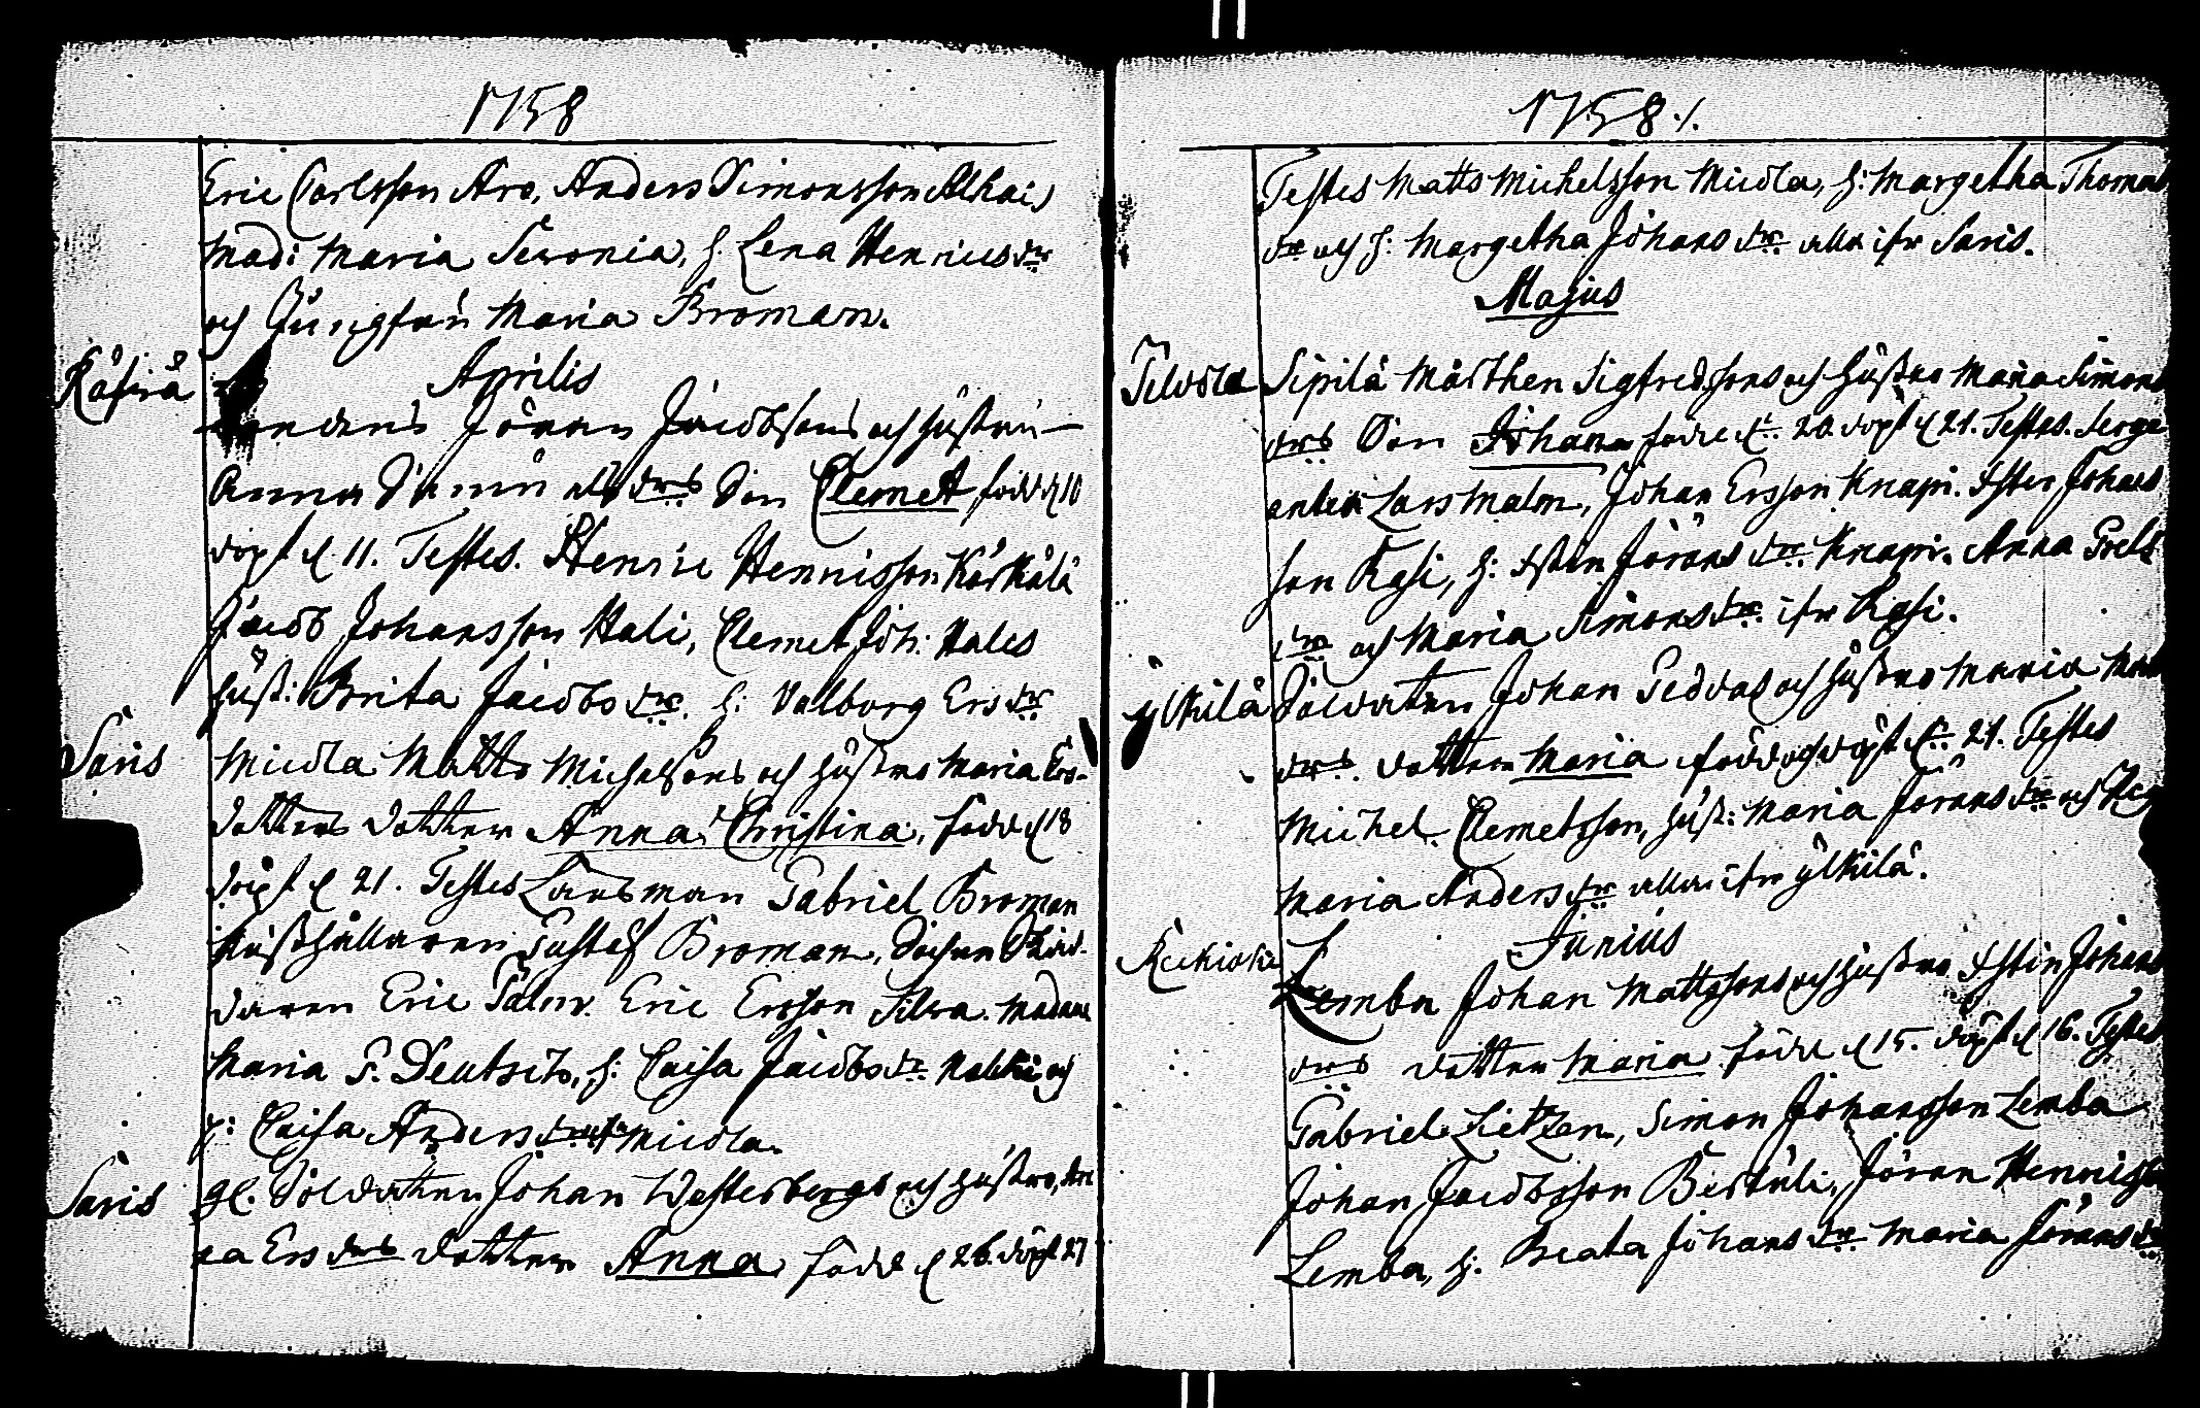 1758
Eric Carlsson Aro, Anders Simonsson Alhais
Mad: Maria Seronia, h. Lena Henricsdr
och Jungfru Maria Broman.
Aprilis
Räfsrä
Jöran Jacobsons och hustru
Anna drs Son Clemet född d 10
döpt d. 11. Testes. Henric Hennisson Kärkälä
Jacob Johansson Hali, Clemet Joh: Hales
hust: Brita Jacobs dr. h: Valborg Ers dr
Saris Micola Matts Michelsons och hustrus Maria Ers-
dotters dotter Anna Christina, född d 18
döpt d 21. Testes Länsman Gabriel Broman
Husthållaren Gustaf Broman,
Eric Palm. Eric Ersson Silwa. Madame
Maria G. Deutsch, h: Caisa Jacobs dr och
h: Caisa Anders dr Micola.
Saris gl. Soldaten Johan Westerbergs och hustros, An
na Ers drs dotter Anna född d 26. döpt 27
1758./.
Testes Matts Michelsson Micola, h: Margetha Thomas
dr och h: Margetha Johans dr alla ifr Saris.
Majus
Telvola Sipilä Mårthen Sigfredssons och hustro Maria Simons
drs Son Johan född d: 20. döpt d 21. Testes. Serge
anten Lars Malm, Johan Ersson Knapi. Johans
son Kasi, h: Jörans dr Knapi. Anna Grels
dr och Maria Simons dr ifr Kasi.
ylkilä Soldaten Johan Pedvas och hustros Maria
drs. dotter Maria född och döpt d: 21. Testes
Michel Clemetsson, hust: Maria Jörans dr och
Maria Anders dr alla ifr ylkilä.
Junius
Lemba Johan Mattssons och hustro Johans
drs dotter Maria född d 15. döpt d 16. Testes
Gabriel Lietzen, Simon Johansson Lemba
Johan Jacobsson Bertuli, Jöran Henniss
Lemba, h: Beata Johans dr Maria Jörans dr